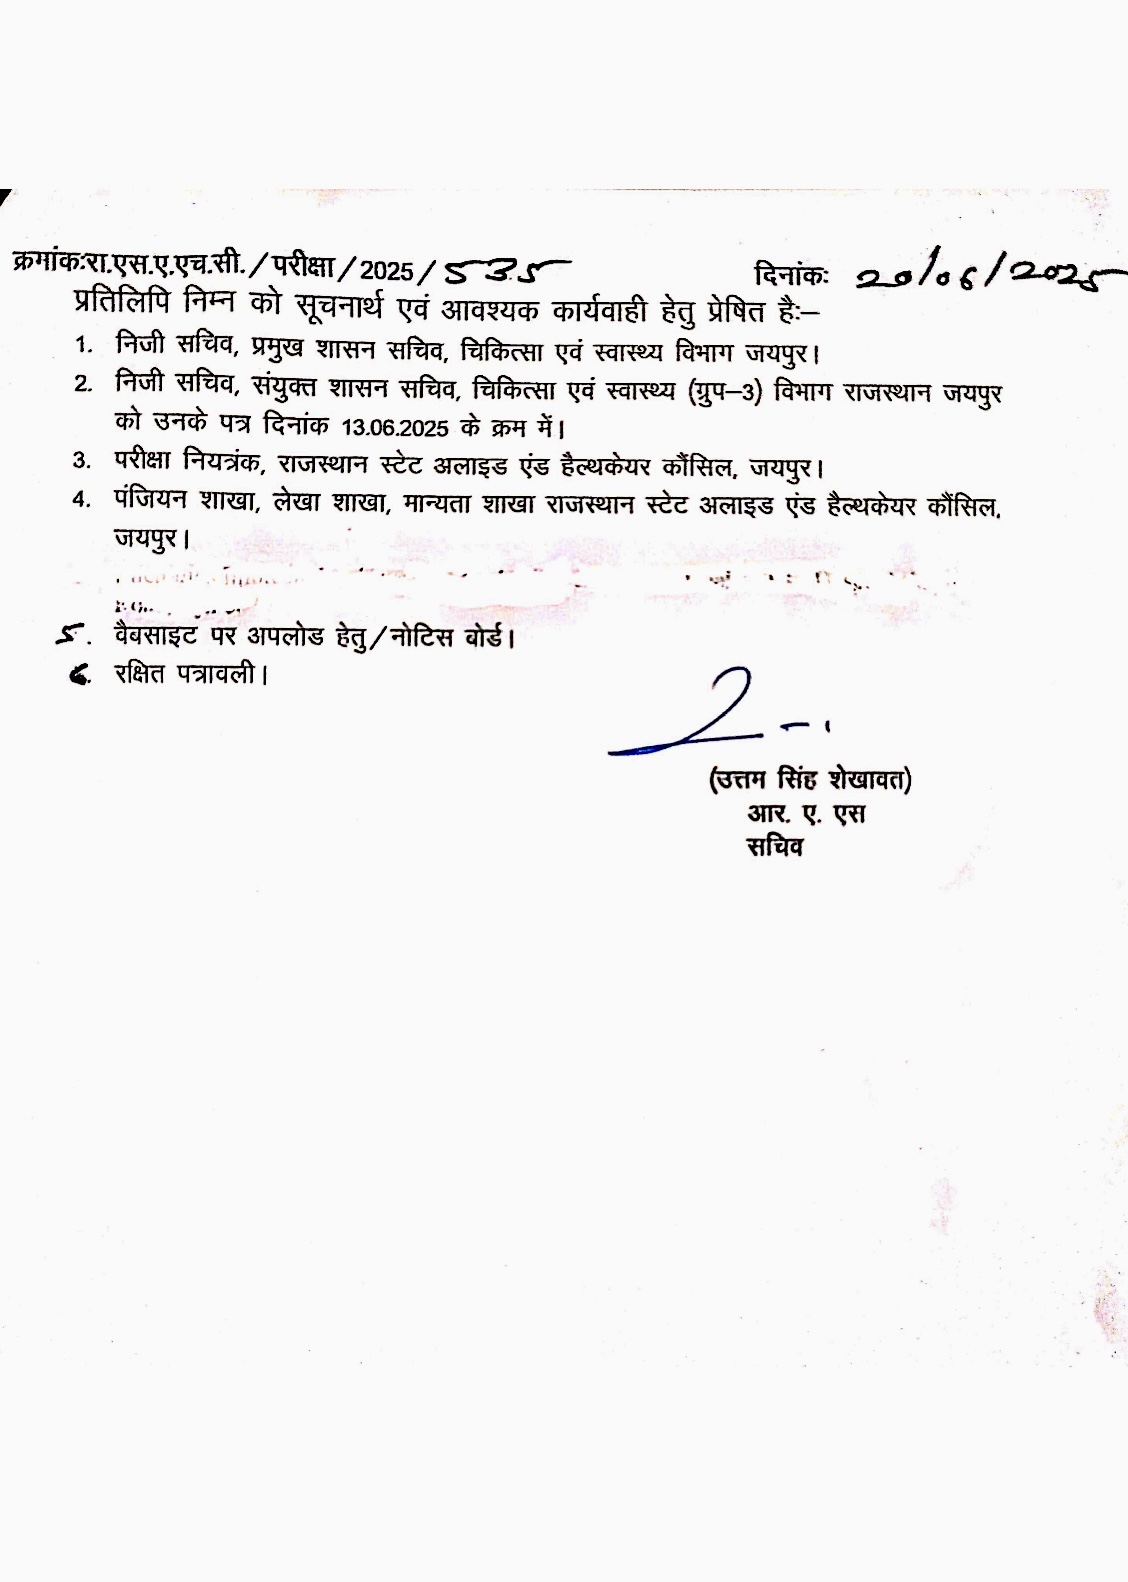 क्रमांकःरा.एस.ए.एच.सी./परीक्षा/2025/535 दिनांकः 20/06/2025
प्रतिलिपि निम्न को सूचनार्थ एवं आवश्यक कार्यवाही हेतु प्रेषित हैः–
1. निजी सचिव, प्रमुख शासन सचिव, चिकित्सा एवं स्वास्थ्य विभाग जयपुर।
2. निजी सचिव, संयुक्त शासन सचिव, चिकित्सा एवं स्वास्थ्य (ग्रुप–3) विभाग राजस्थान जयपुर
को उनके पत्र दिनांक 13.06.2025 के क्रम में।
3. परीक्षा नियत्रंक, राजस्थान स्टेट अलाइड एंड हैल्थकेयर कौंसिल, जयपुर।
4. पंजियन शाखा, लेखा शाखा, मान्यता शाखा राजस्थान स्टेट अलाइड एंड हैल्थकेयर कौंसिल,
जयपुर।
5. वैबसाइट पर अपलोड हेतु/नोटिस बोर्ड।
6. रक्षित पत्रावली।
(उत्तम सिंह शेखावत)
आर. ए. एस
सचिव